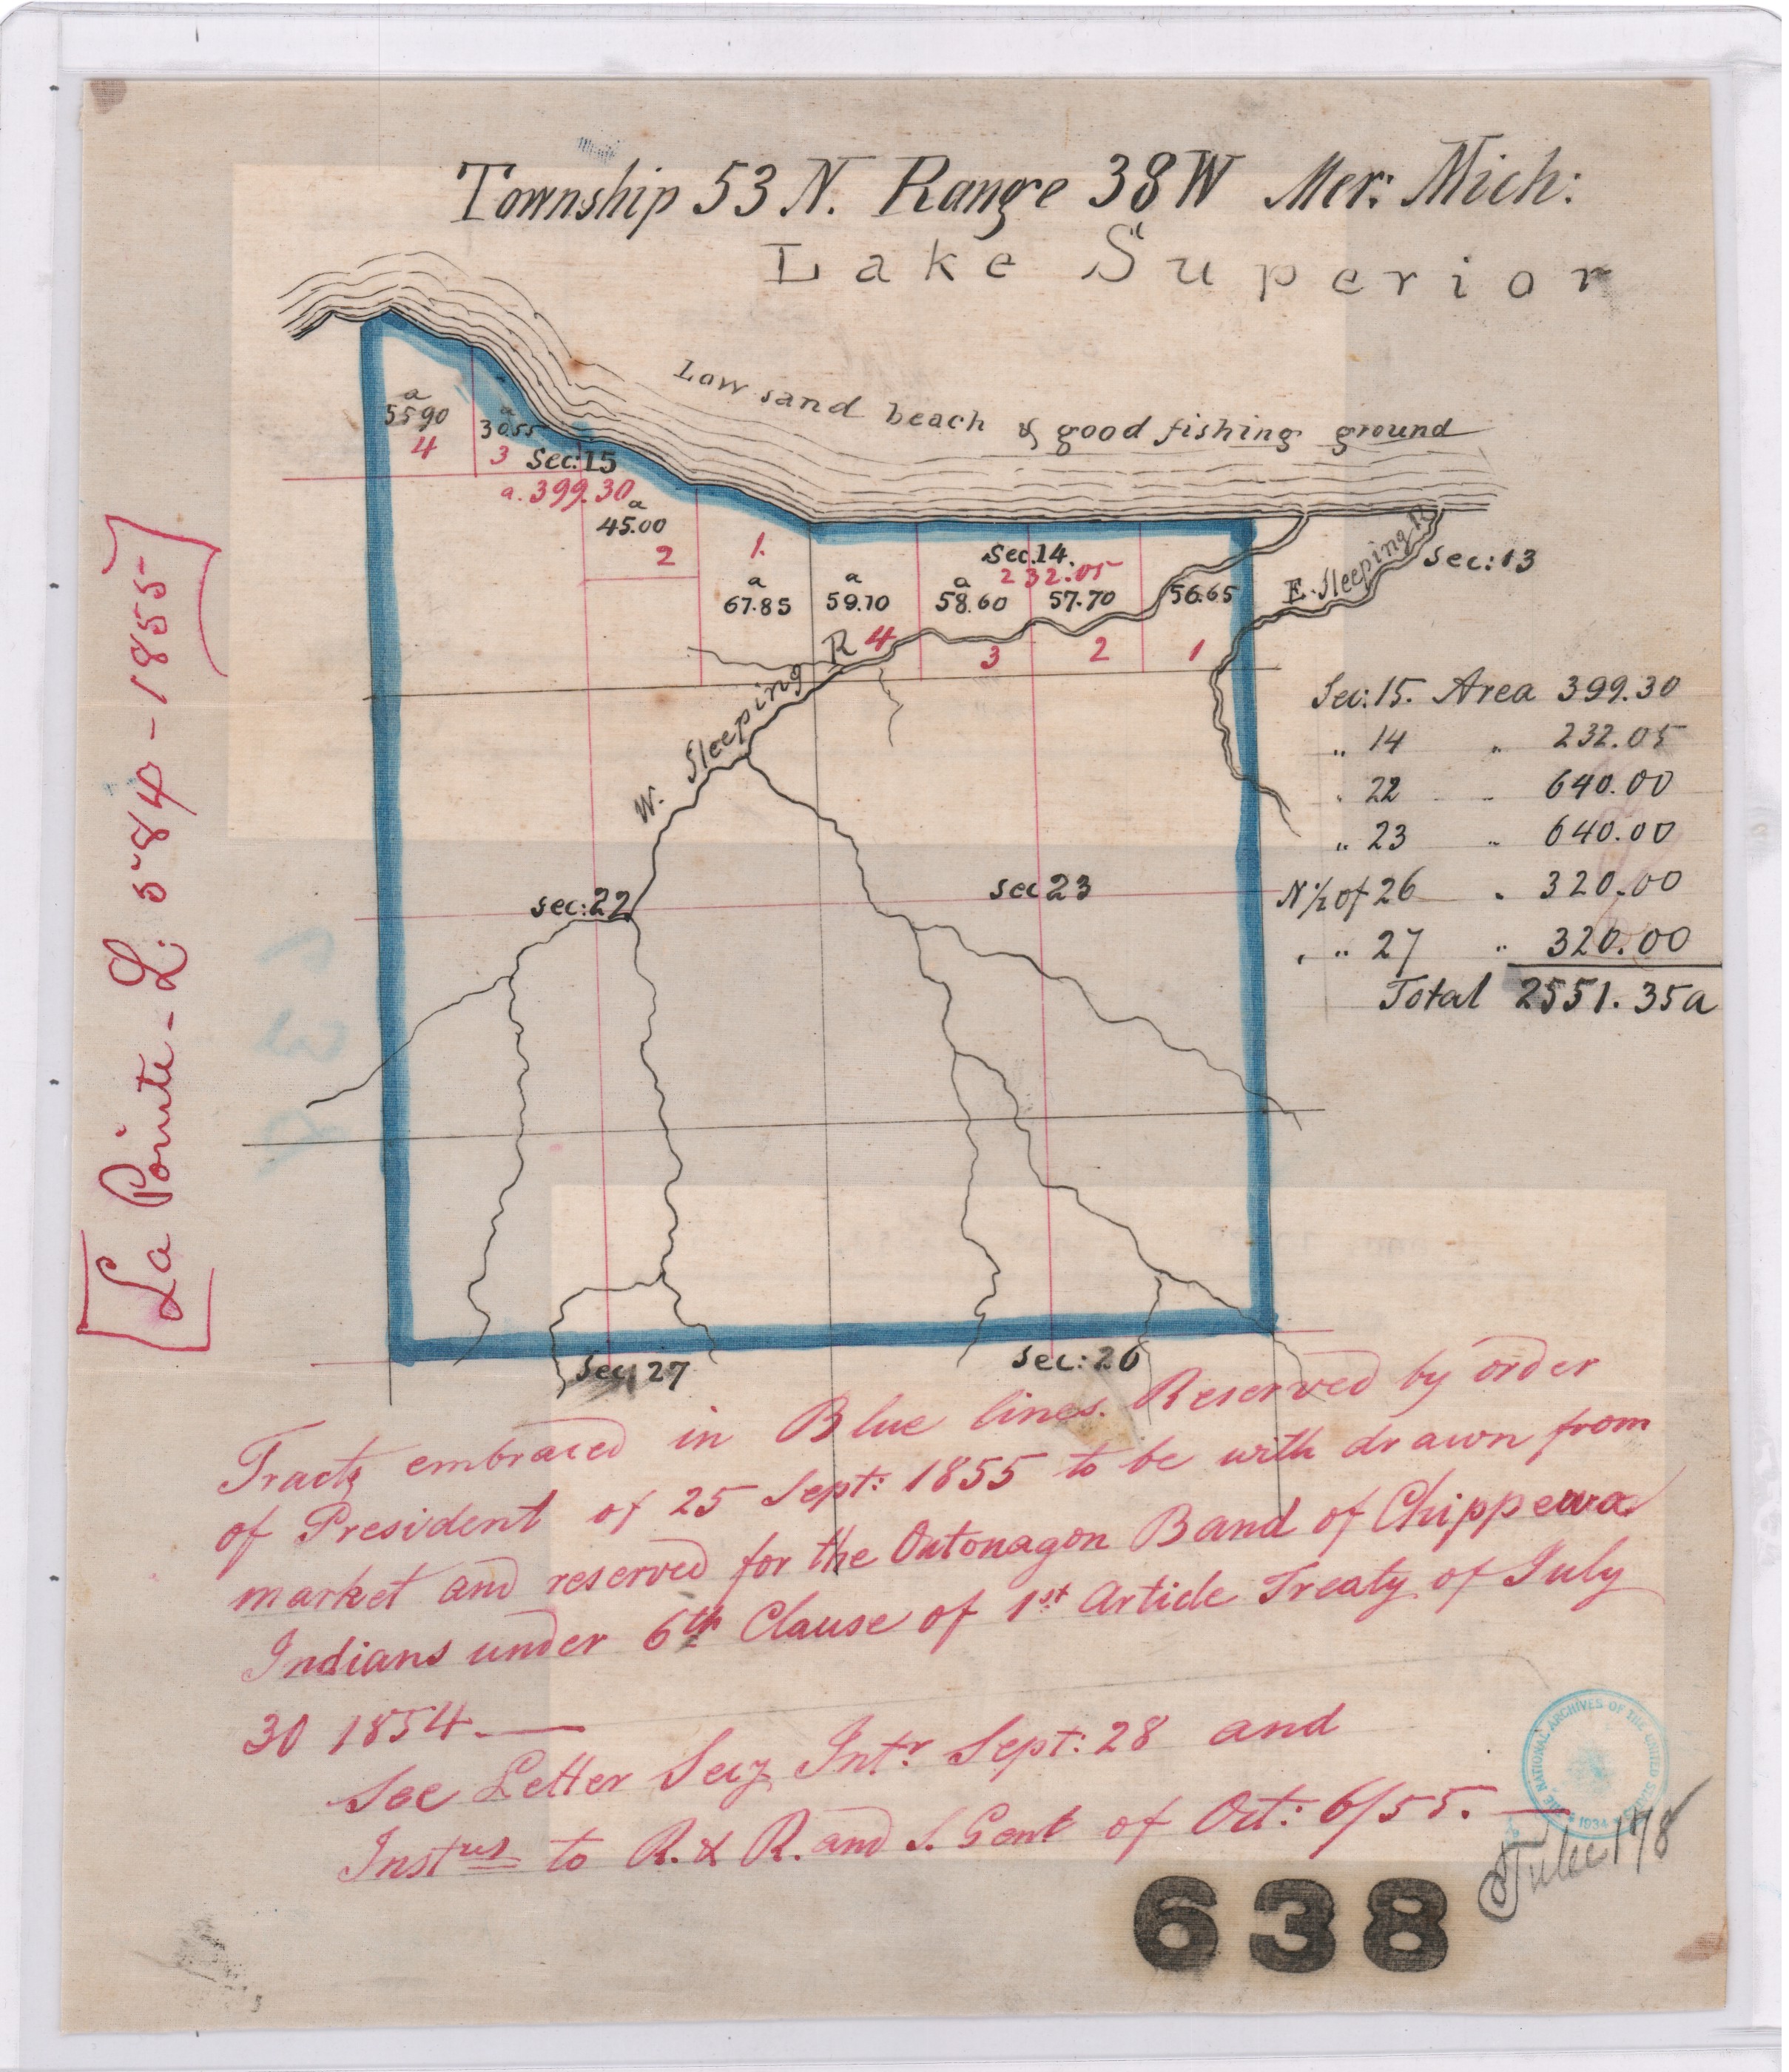 Township 53 N. Range 38 W Mer: Mich:
Lake Superior
Low sand beach & good fishing ground
a
55 90
4
a
30 55
3
Sec: 15
a. 399.30
a
45.00
2
1.
a
67.85
a
59.10
4
Sec. 14.
232.05
a
58.60
3
57.70
2
56.65
1
E. Sleeping R
Sec: 13
W. Sleeping R
Sec: 15. Area 399.30
" 14 " 232.05
" 22 " 640.00
" 23 " 640.00
N ½ of 26 " 320.00
" " 27 " 320.00
Total 2551.35a
sec: 22
sec 23
Sec. 27
Sec: 26
La Pointe - L. 584 - 1855
Tracts embraced in Blue lines. Reserved by order
of President of 25 Sept: 1855 to be with drawn from
market and reserved for the Ontonagon Band of Chippewa
Indians under 6th Clause of 1st Article Treaty of July
30 1854.
See Letter Secy Intr Sept: 28 and
Instns to R. & R. and S. Genl of Oct: 6/55.
THE NATIONAL ARCHIVES OF THE UNITED STATES
1934
Tube 178
638